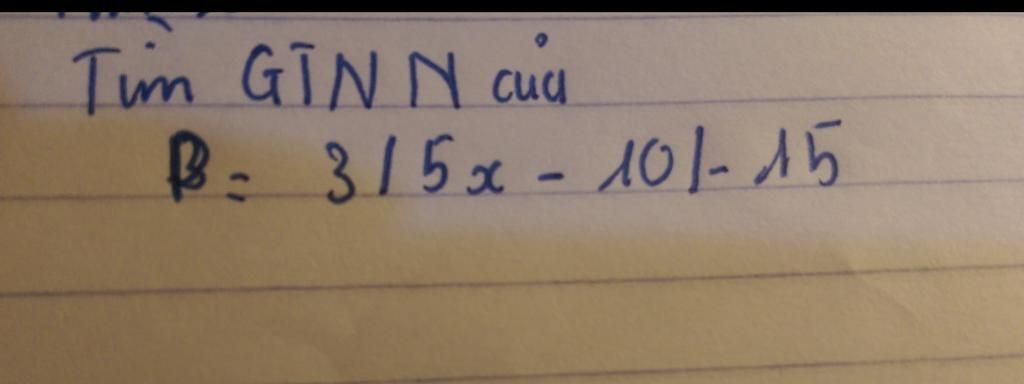 Tìm GTNN của
B = 3|5x - 10|- 15